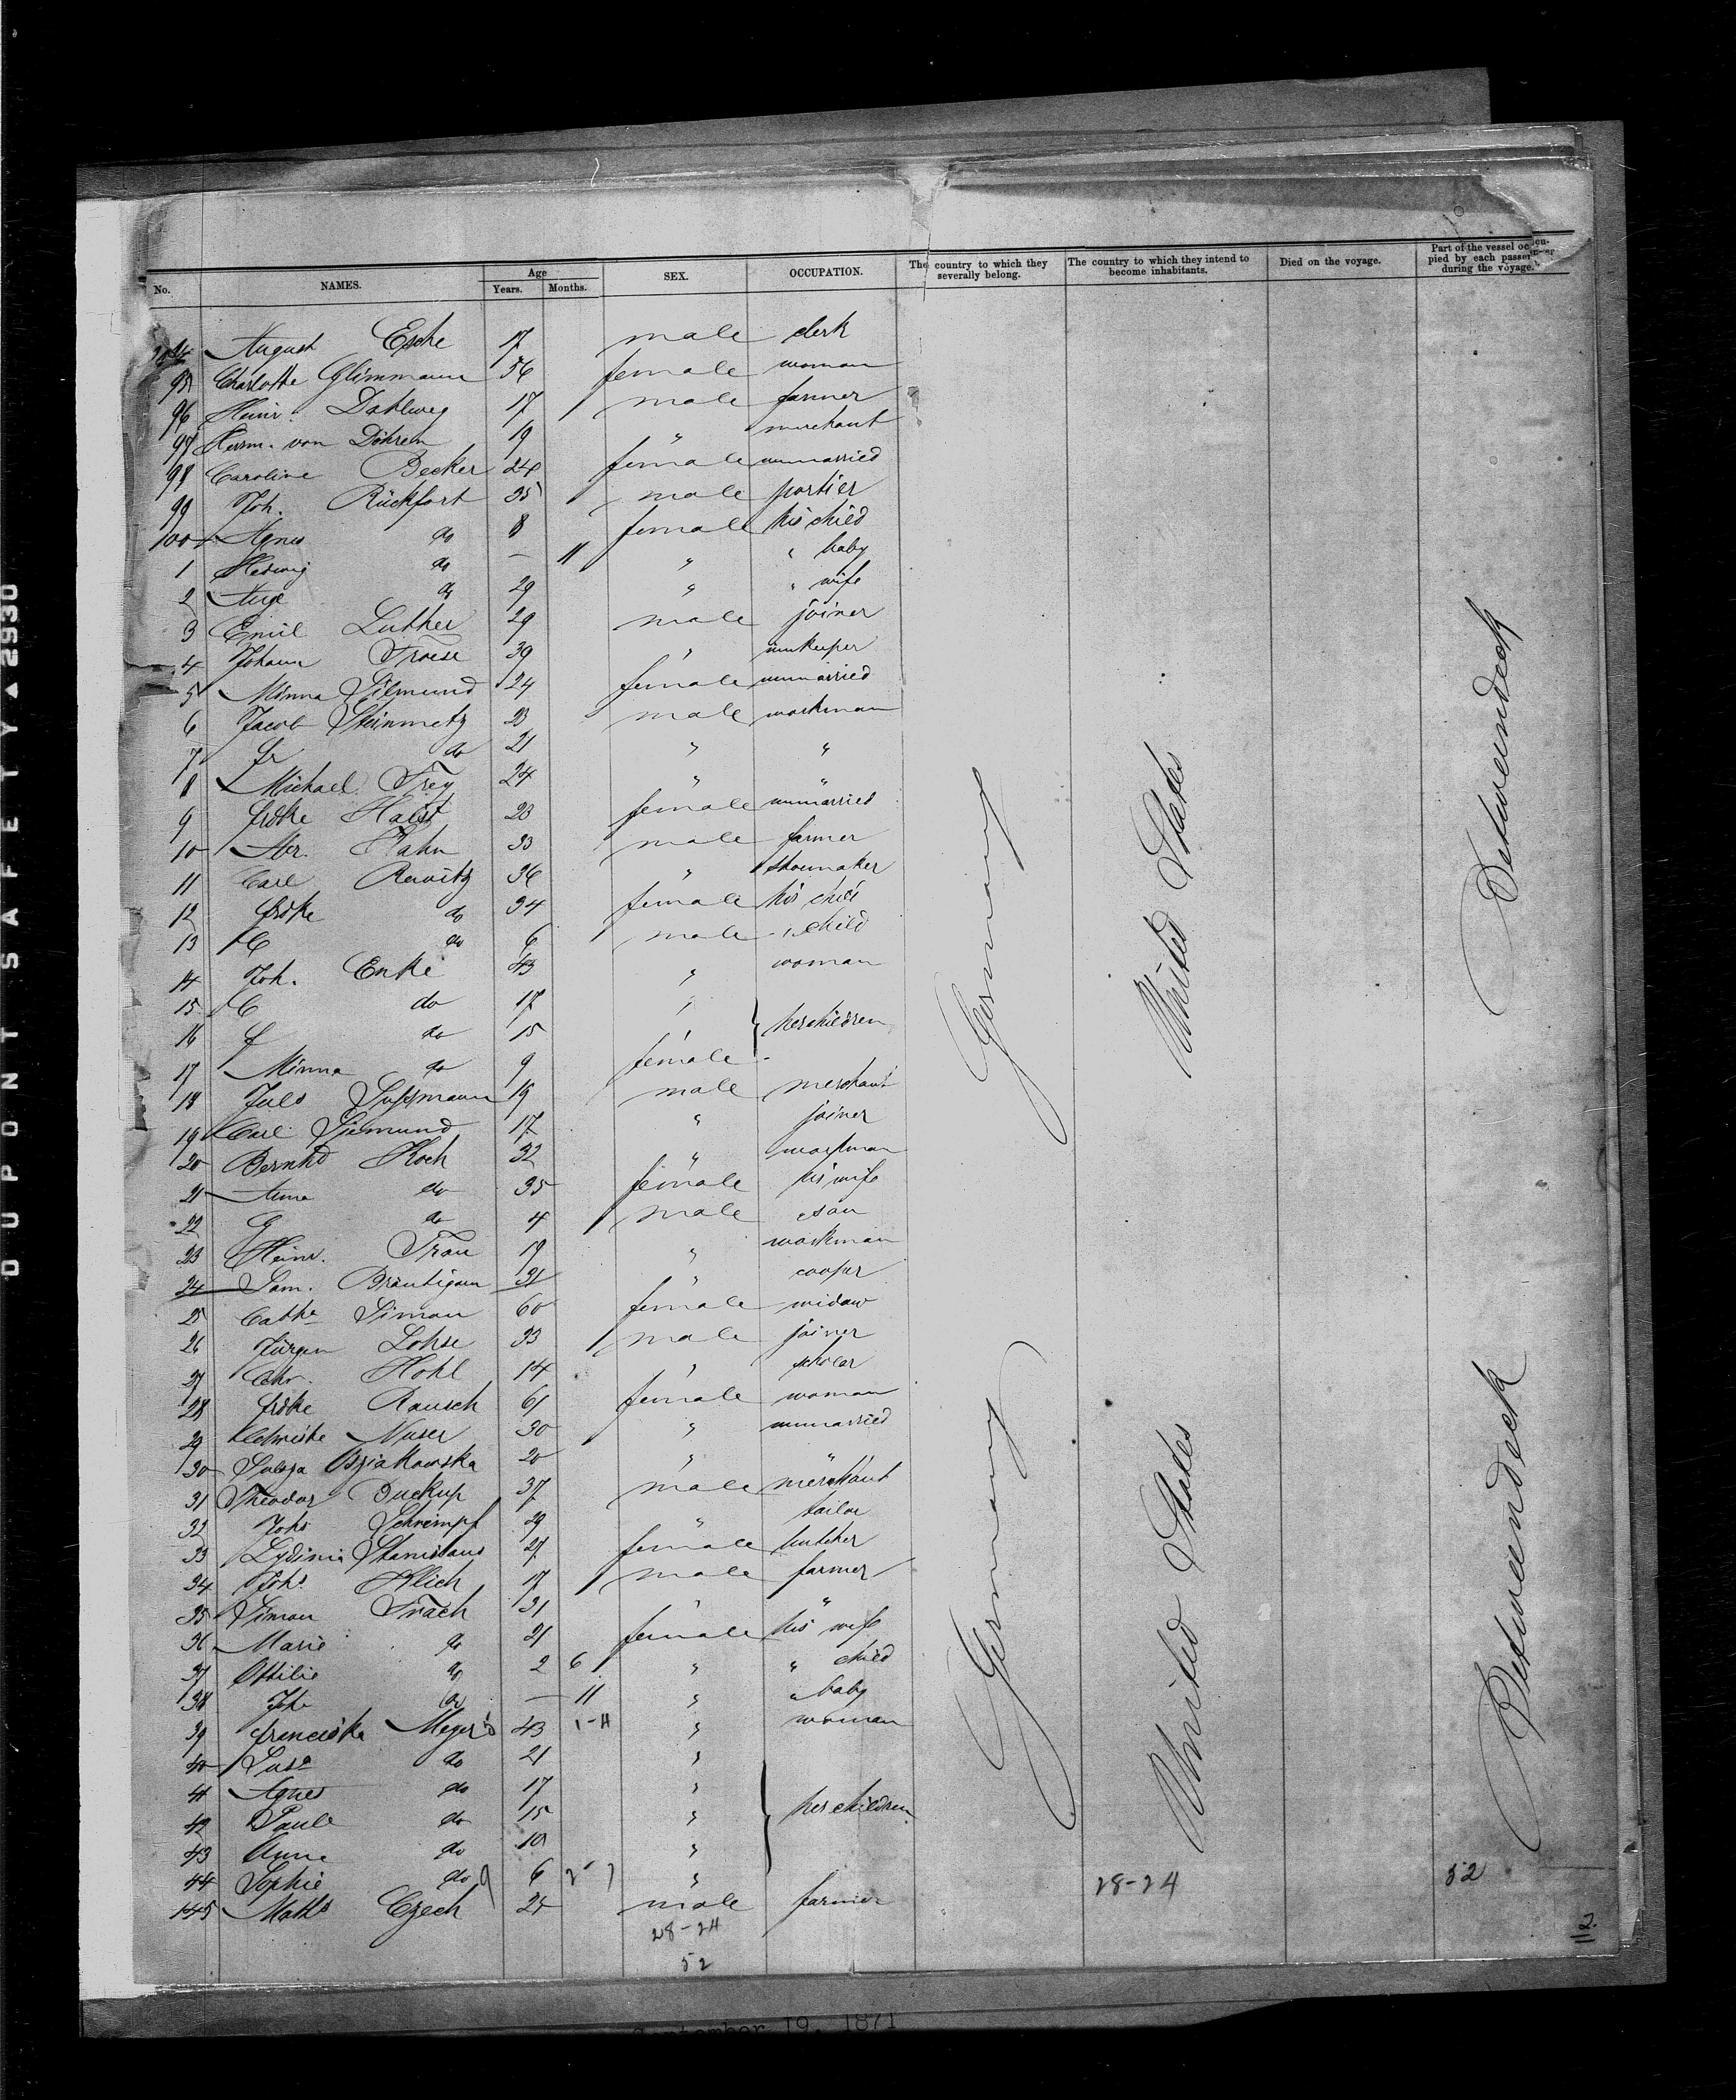 No. NAMES. Age Years. Months. SEX. OCCUPATION. The country to which they severally belong. The country to which they intend to become inhabitants. Died on the voyage. Part of the vessel occupied by each passenger during the voyage.
94 August Esche 17 male clerk
95 Charlotte Glimmann 56 female woman
96 Heinr. Dahlweg 17 male farmer
97 Herm. von Döhren 19 " merchant
98 Caroline Becker 24 female unmarried
99 Joh. Rückfort 35 male portier
100 Agnes do 8 female his child
1 Hedwig do — 11 " " baby
2 Aug do 29 " " wife
3 Emil Luther 29 male joiner
4 Johann Froese 39 " innkeeper
5 Minna Silmund 24 female unmarried
6 Jacob Steinmetz 23 male workman
7 Fr do 21 " "
8 Michael Frey 24 " "
9 Frdke Halst 23 female unmarried
10 Abr. Hahn 33 male farmer
11 Carl Rewitz 36 " shoemaker
12 Frdke do 34 female his child
13 C do 6 male " child
14 Joh. Enke 43 " woman
15 C do 17 "
16 F do 15 " her children
17 Minna do 9 female
18 Juls Sussmann 19 male merchant
19 Carl Siemund 17 " joiner
20 Bernhd Koch 32 " workman
21 Anna do 35 female his wife
22 G do 4 male " son
23 Heinr. Trau 19 " workman
24 Sam. Bräutigam 31 " cooper
25 Cathe Simon 60 female widow
26 Jürgen Lohse 33 male joiner
27 Chr. Hohl 14 " scholar
28 Frdke Rausch 61 female woman
29 Christe Nuser 30 " unmarried
30 Bziakowska 20 " "
31 Theodor Buckup 37 male merchant
32 Johs Schrimpf 29 " tailor
33 Stanislaus 27 female butcher
34 Johs Klich 17 male farmer
35 Simon Trach 31 " "
36 Marie do 21 female his wife
37 Ottilie do 2 6 " " child
38 Joh do — 11 " " baby
39 Franciska Meyer's 43 1-11 " woman
40 Susa do 21 "
41 Agnes do 17 "
42 Paule do 15 " her children
43 Anna do 10 "
44 Sophie do 6 "
145 Maths Czech 25 male farmer
Germany
United States
Betweendeck
Germany
United States
Betweendeck
28-24
52
28-24
52
2.
September 19, 1871
DUPONT SAFETY ▲ 2930